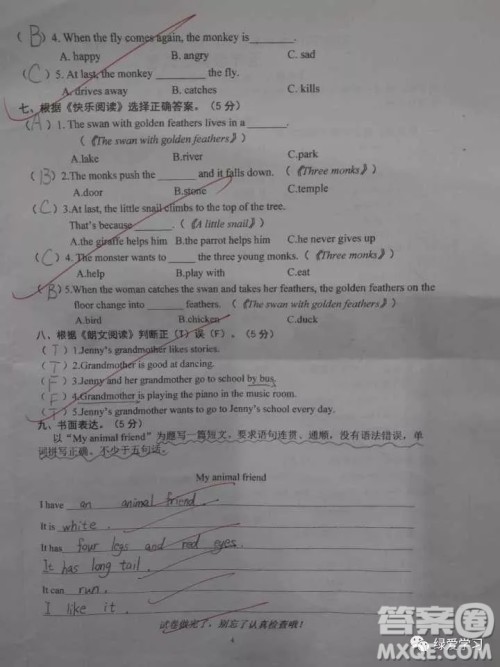 ( B ) 4. When the fly comes again, the monkey is________.
A. happy B. angry C. sad
( C ) 5. At last, the monkey ________ the fly.
A. drives away B. catches C. kills
七、根据《快乐阅读》选择正确答案。（5 分）
( A ) 1. The swan with golden feathers lives in a ______.
（《The swan with golden feathers》）
A.lake B.river C.park
( B ) 2.The monks push the ______ and it falls down. （《Three monks》）
A.door B.stone C.temple
( C ) 3.At last, the little snail climbs to the top of the tree.
That's because ______.（《A little snail》）
A.the giraffe helps him B.the parrot helps him C.he never gives up
( C ) 4. The monster wants to ______ the three young monks. （《Three monks》）
A.help B.play with C.eat
( B ) 5.When the woman catches the swan and takes her feathers, the golden feathers on the
floor change into ______ feathers. （《The swan with golden feathers》）
A.bird B.chicken C.duck
八、根据《朗文阅读》判断正（T）误（F）。（5 分）
( T ) 1.Jenny's grandmother likes stories.
( T ) 2.Grandmother is good at dancing.
( F ) 3.Jenny and her grandmother go to school by bus.
( F ) 4.Grandmother is playing the piano in the music room.
( T ) 5.Jenny's grandmother wants to go to Jenny's school every day.
九、书面表达。（5 分）
以“My animal friend”为题写一篇短文。要求语句连贯、通顺，没有语法错误，单
词拼写正确。不少于五句话。
My animal friend
I have an animal friend.
It is white.
It has four legs and red eyes.
It has long tail.
It can run.
I like it.
试卷做完了，别忘了认真检查哦！
4
答案圈
MXQE.COM
绿爱学习